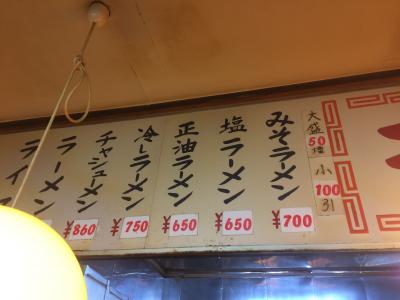 大盛50増
小100引
みそラーメン
¥700
塩ラーメン
¥650
正油ラーメン
¥650
冷しラーメン
¥750
チャシューメン
¥860
ラーメン
¥
ライス